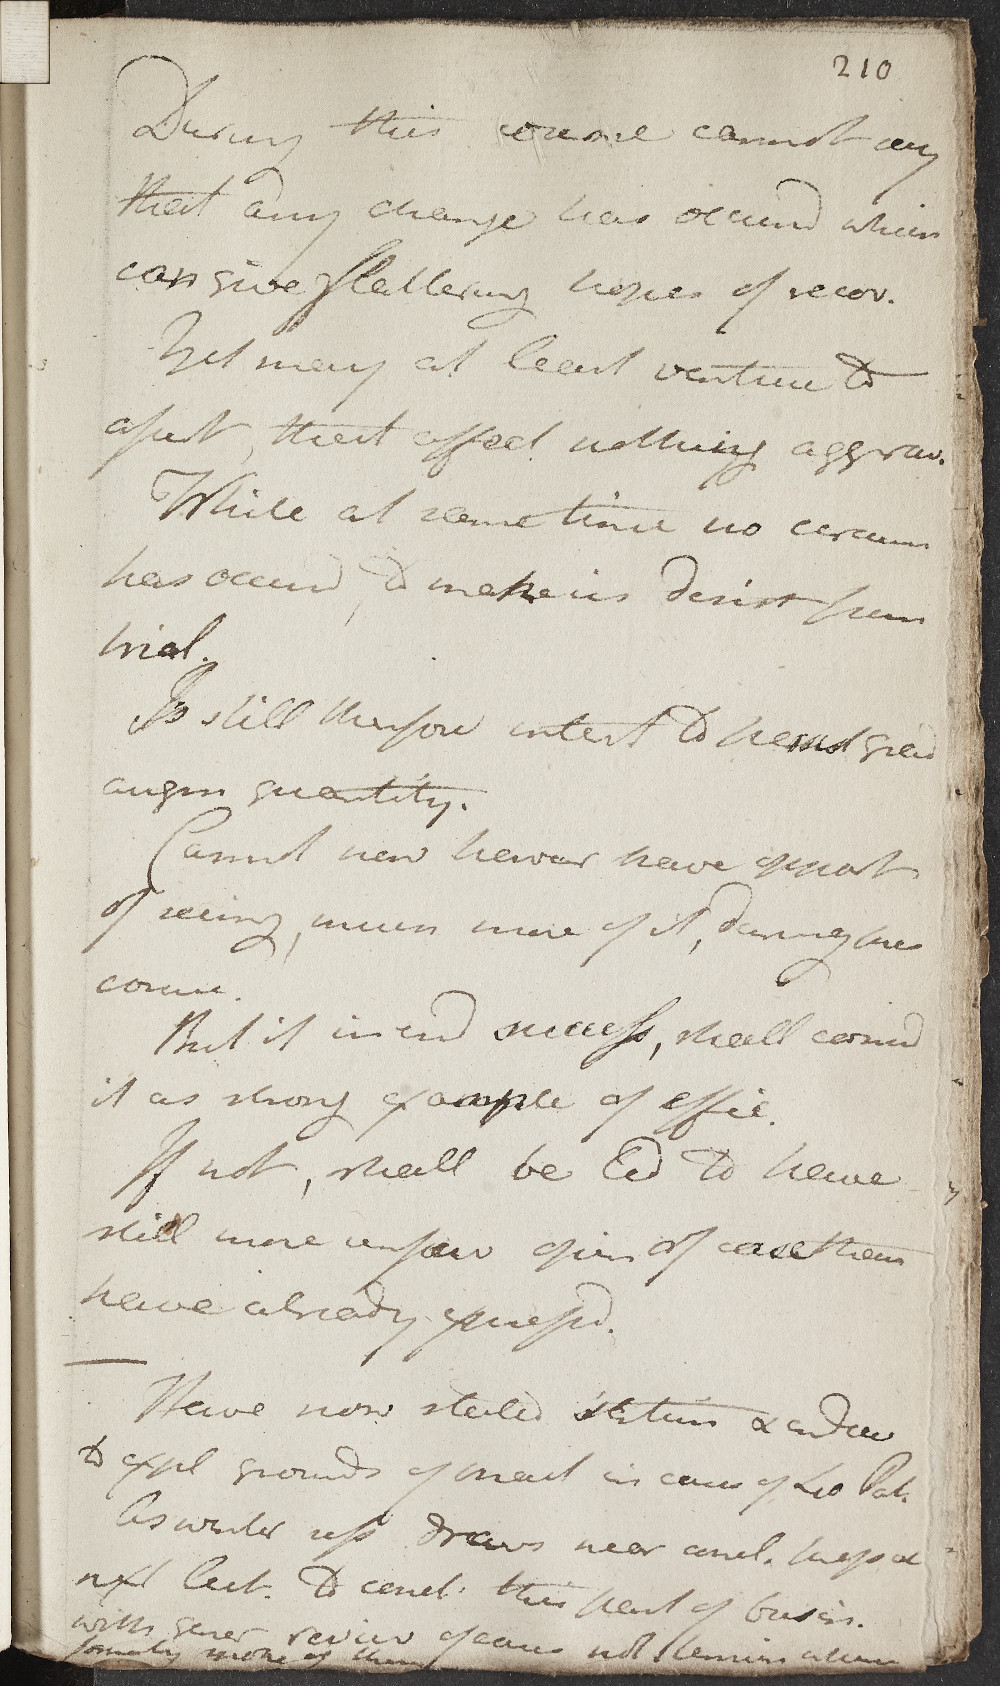 210
During this course cannot say
that any change has occurrd which
can give flattering hopes of recov.
Yet may at least venture to
assert, that affect nothing aggrav.
While at same time no circum
has occurd, to make us desist from
trial.
Is still therefore intent to persist grad
augm quantity.
Cannot now howevr have opport
of seeing, much more of it, during pres
course.
But if in end success, shall consid
it as strong example of effic.
If not, shall be led to have
still more unfav opin of case than
have already expressd.
Have now stated & endeav
to expl grounds of treat in cases of Pat.
As winter sess draws near concl. propose
next lect. to concl. this part of busin.
with gener review of cases not termin when
formerly more of them